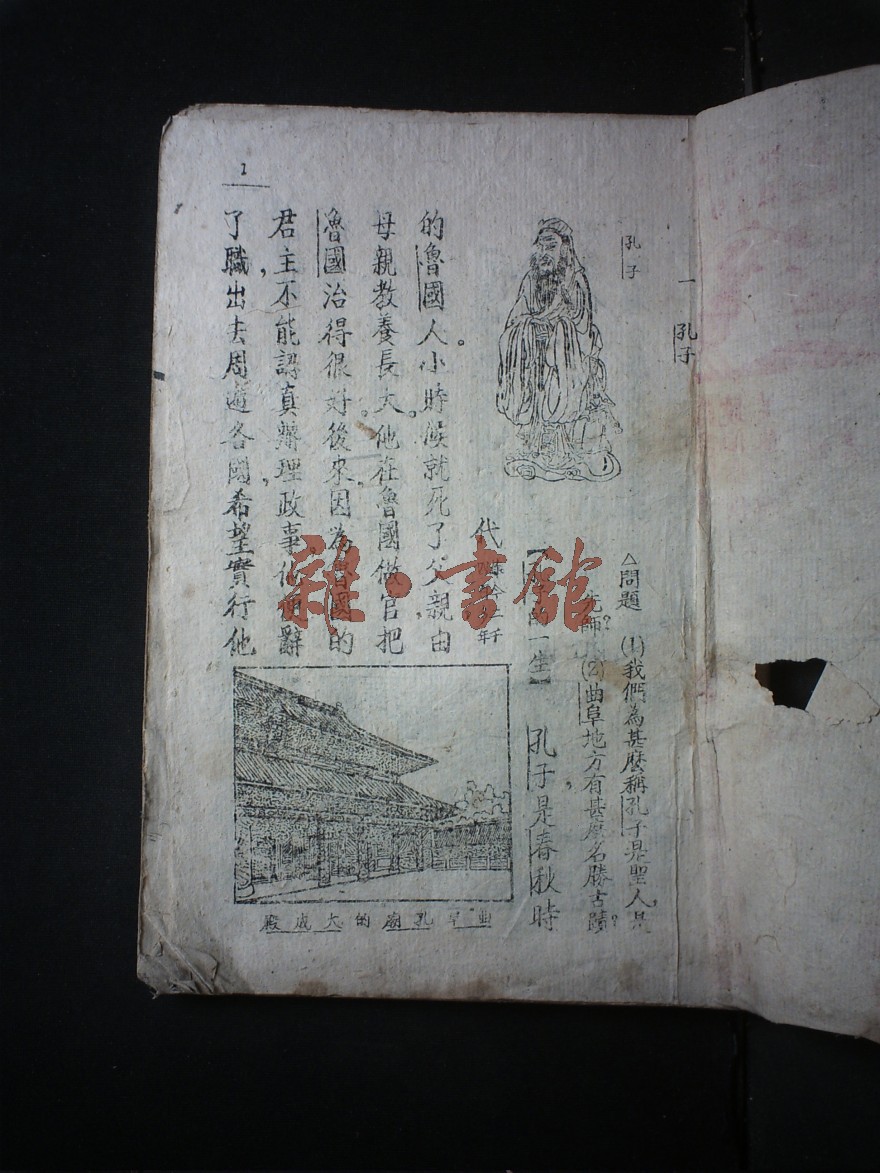 一 孔子
孔子
△問題 (1)我們為甚麼稱孔子是聖人,是
先師?(2)曲阜地方有甚麼名勝古蹟?
的一生】 孔子是春秋時
代
的魯國人。小時候就死了父親,由
母親教養長大。他在魯國做官,把
魯國治得很好。後來因為魯國的
君主不能認真辦理政事,他便辭
了職,出去周遊各國,希望實行他
曲阜孔廟的大成殿
1
雜·書館